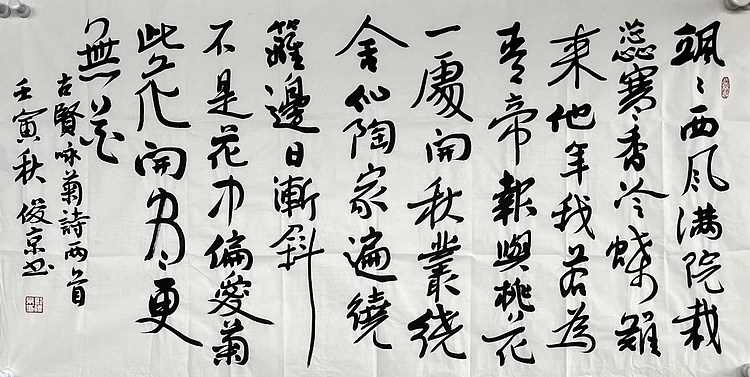 颯〻西风满院栽
蕊寒香冷蝶難
来他年我若為
青帝報與桃花
一處開秋叢绕
舍似陶家遍绕
籬邊日漸斜
不是花中偏愛菊
此花開尽更
無花
古賢咏菊詩两首
壬寅秋 俊京书